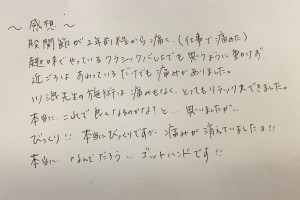 ～感想～
股関節が2年前程から痛く、(仕事で痛めた)
趣味でやっているクラシックバレエでも思うように動けず、
近ごろは あるいているだけでも痛みがありました。
川渡先生の施術は 痛みもなく、とってもリラックスできました。
本当に、これで良くなるのかな?と…思いましたが…
びっくり!! 本当にびっくりですが、痛みが消えていました!!
本当に、なんでだろう… ゴットハンドです!!